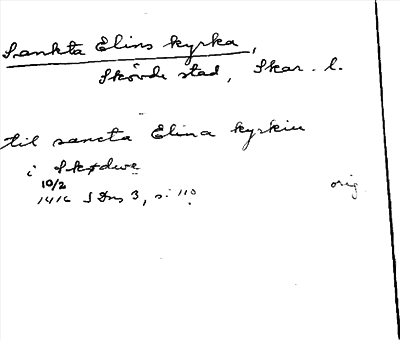 Sankta Elins kyrka,
Skövde stad, Skar. l.
til sancta Elina kyrkiu
i Skødwe
10/2
1416 SDns 3, s. 110
orig.